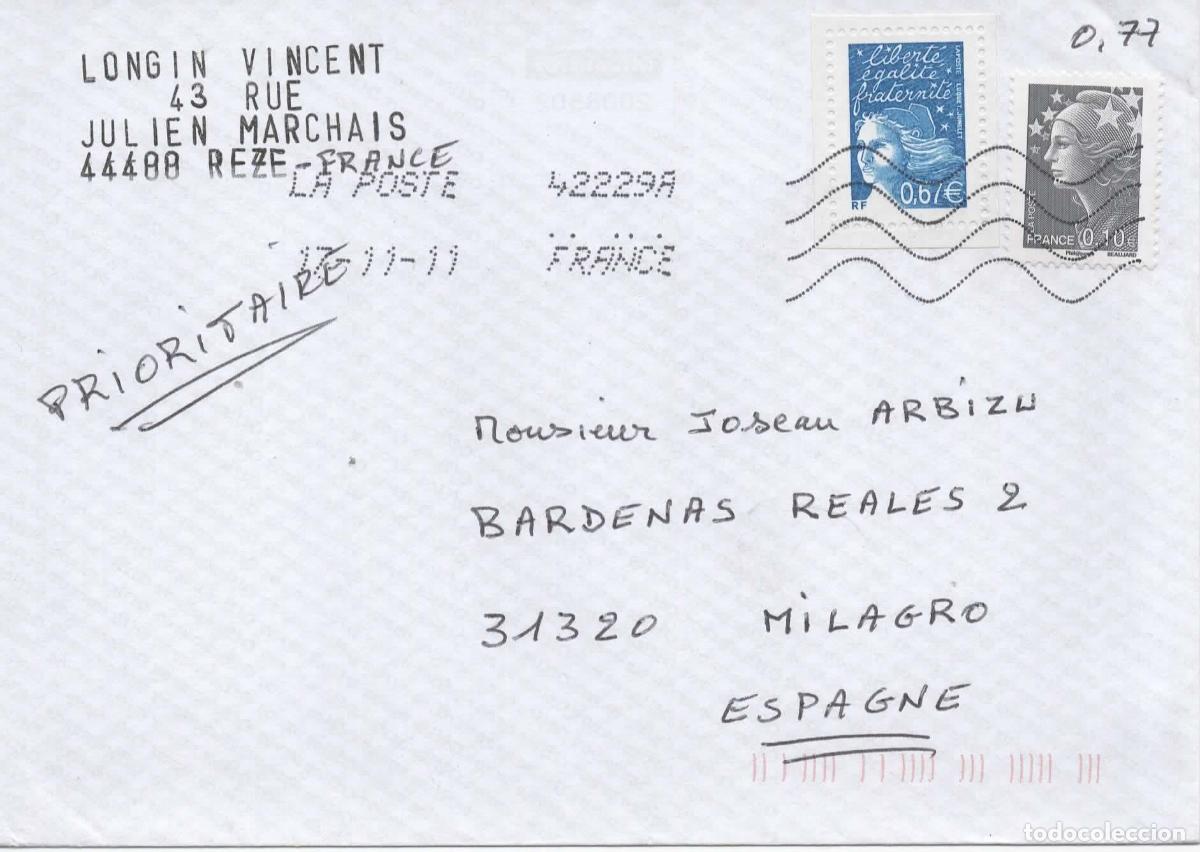 0,77
LONGIN VINCENT
43 RUE
JULIEN MARCHAIS
44400 REZE-FRANCE
LA POSTE 42229A
17-11-11 FRANCE
liberté
égalité
fraternité
LA POSTE LUQUET-JUMELET
RF 0,67€
LA POSTE
FRANCE 0,10€
BEAUJARD
PRIORITAIRE
Monsieur Joseau ARBIZU
BARDENAS REALES 2
31320 MILAGRO
ESPAGNE
todocoleccion